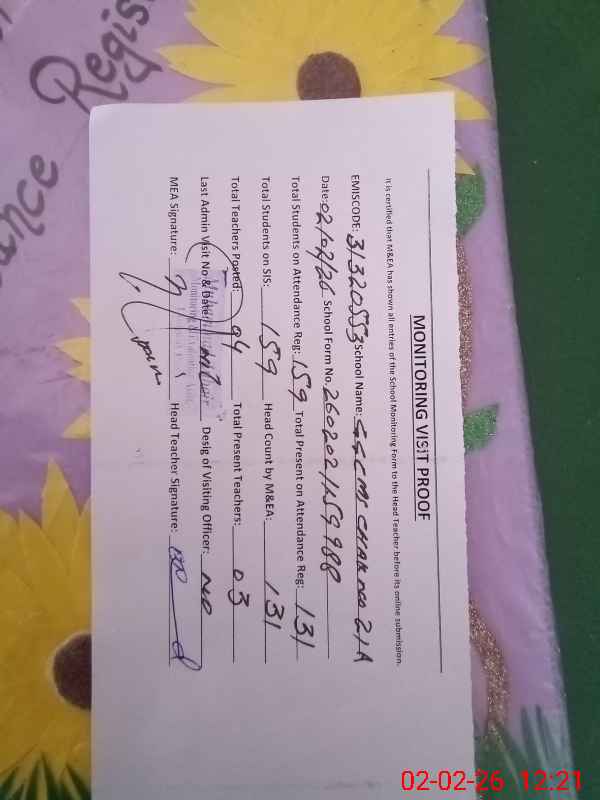 Regis
ance
MONITORING VISIT PROOF
It is certified that M&EA has shown all entries of the School Monitoring Form to the Head Teacher before its online submission.
EMISCODE: 31320553 School Name: GGCMS CHAK NO 21A
Date: 02/02/26 School Form No. 2602021159988
Total Students on Attendance Reg: 159 Total Present on Attendance Reg: 131
Total Students on SIS: 159 Head Count by M&EA: 131
Total Teachers Posted: 04 Total Present Teachers: 03
Last Admin Visit No & Date: Desig of Visiting Officer: NO
MEA Signature: Head Teacher Signature:
02-02-26 12:21